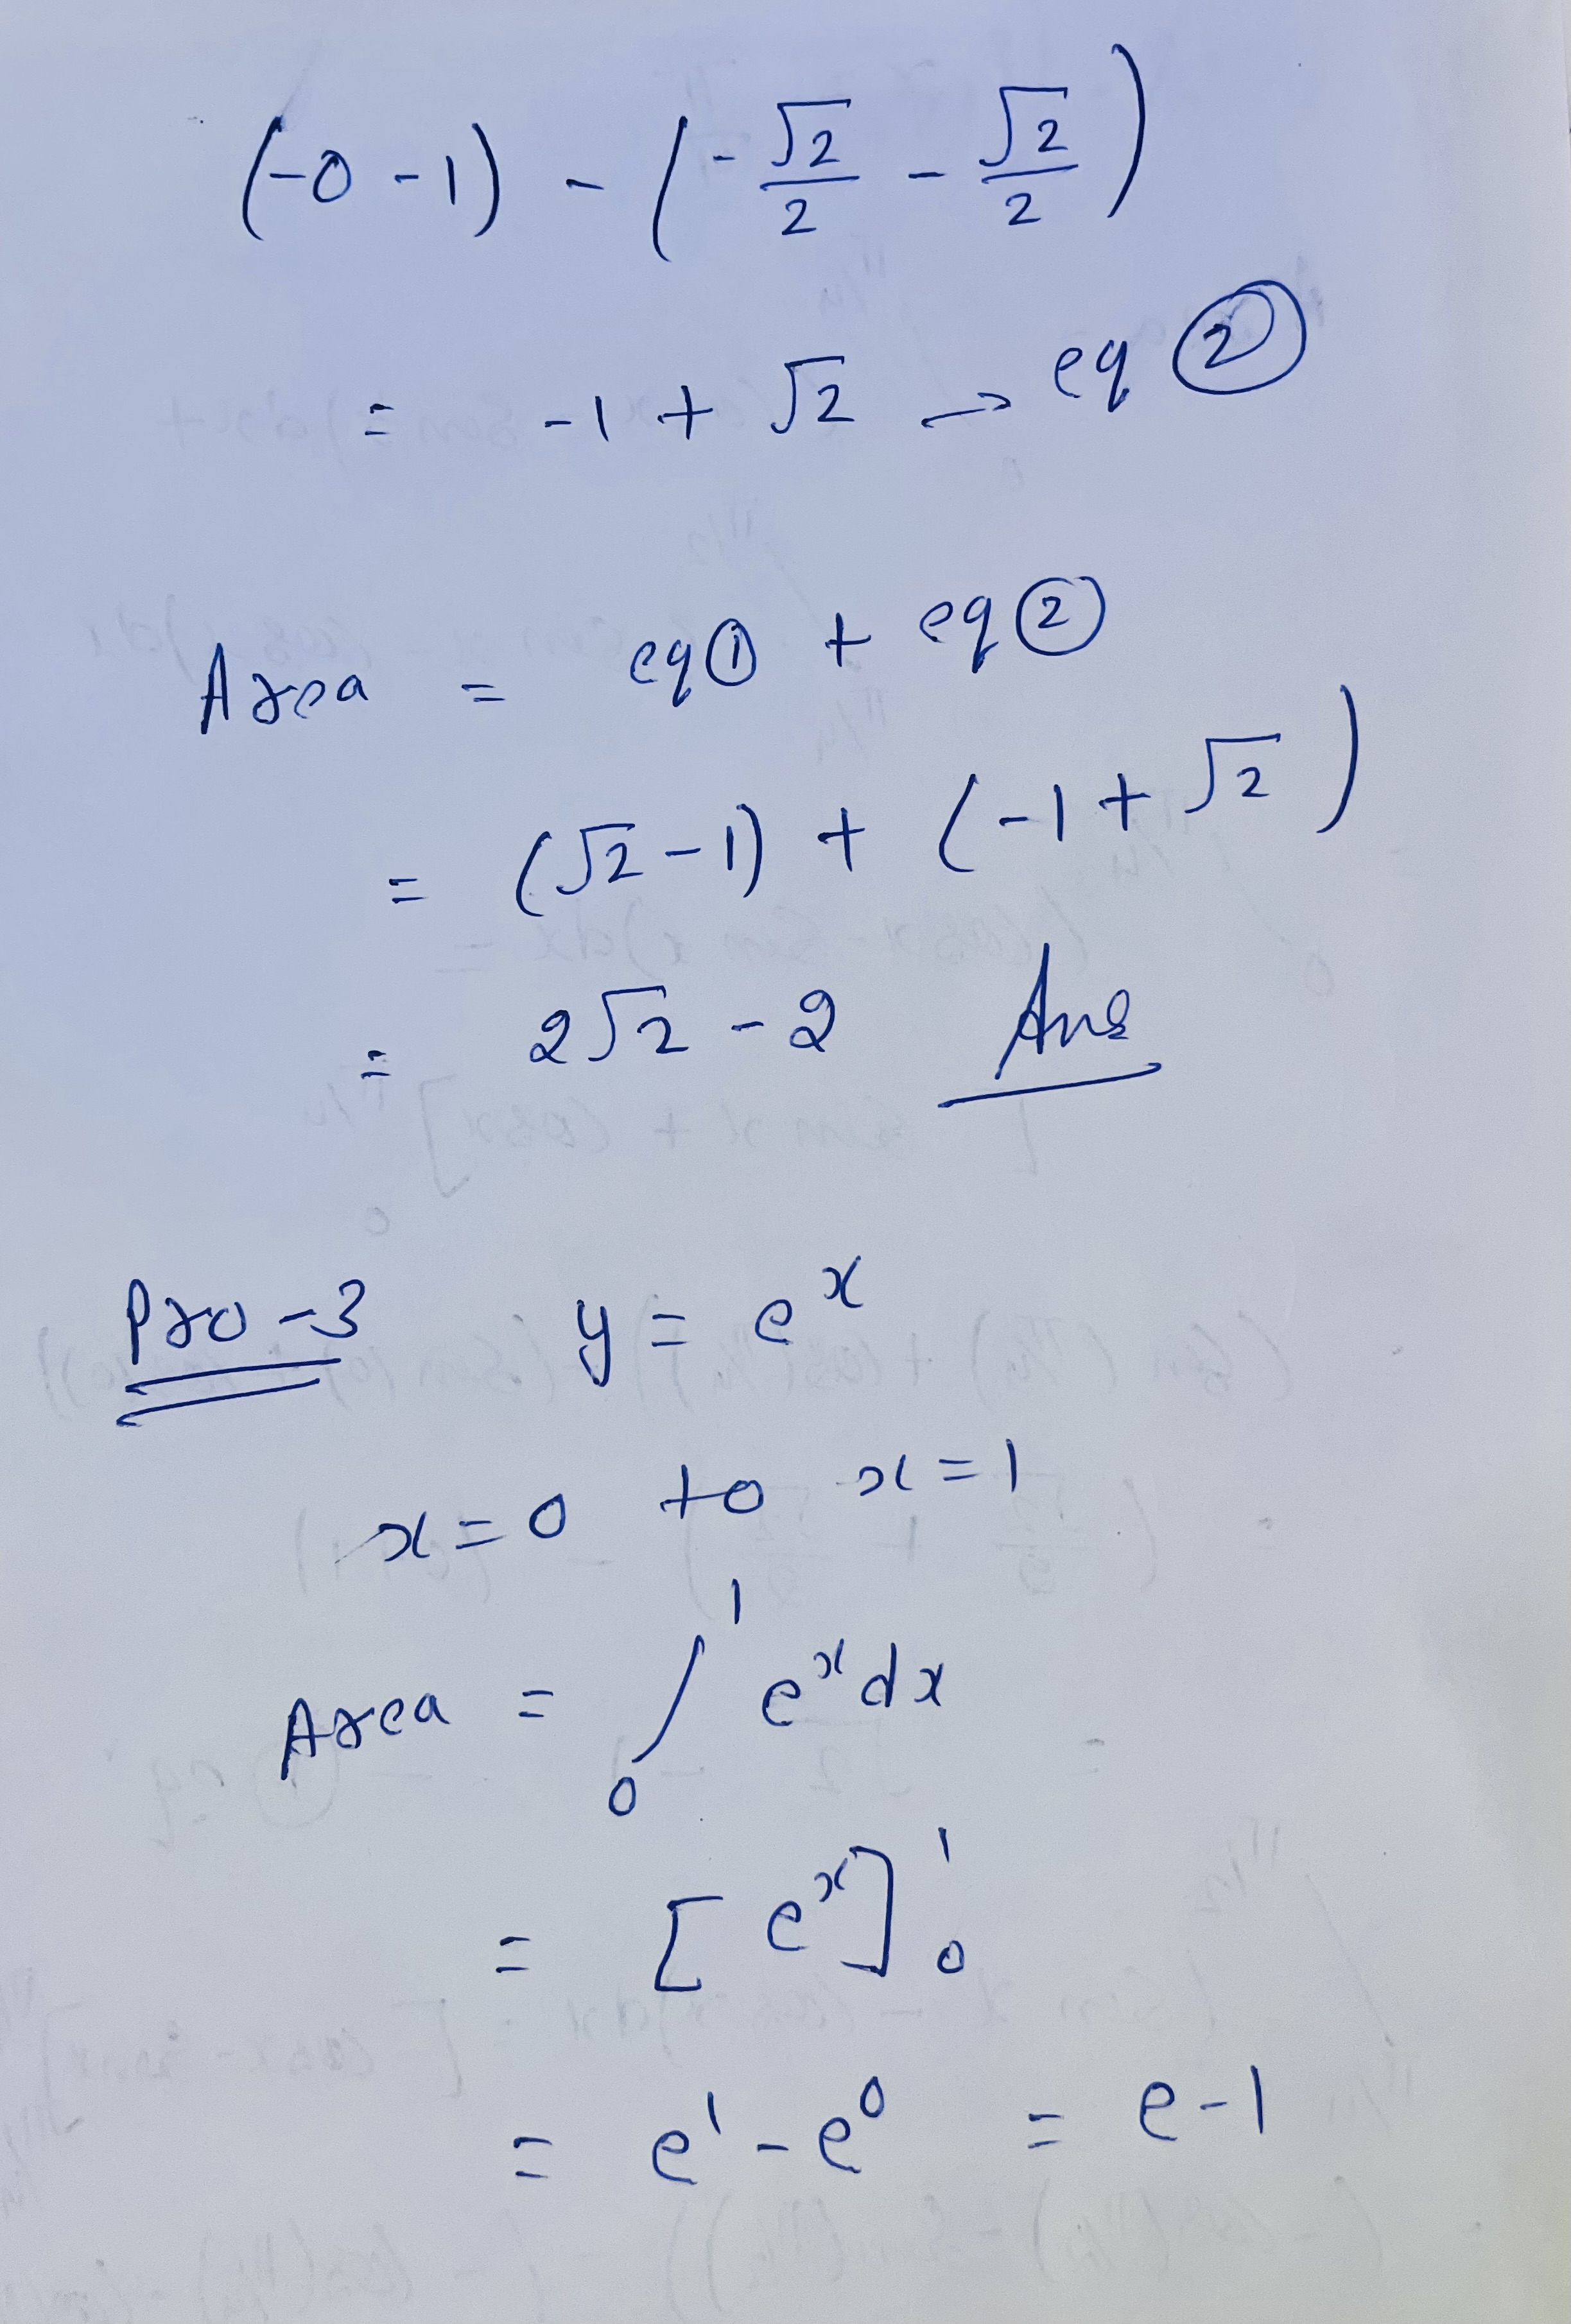 (-0 - 1) - (-√2/2 - √2/2)
= -1 + √2 → eq ②
Area = eq ① + eq ②
= (√2 - 1) + (-1 + √2)
= 2√2 - 2 Ans
Pro-3 y = e^x
x = 0 to x = 1
Area = ∫₀¹ e^x dx
= [e^x]₀¹
= e¹ - e⁰ = e - 1